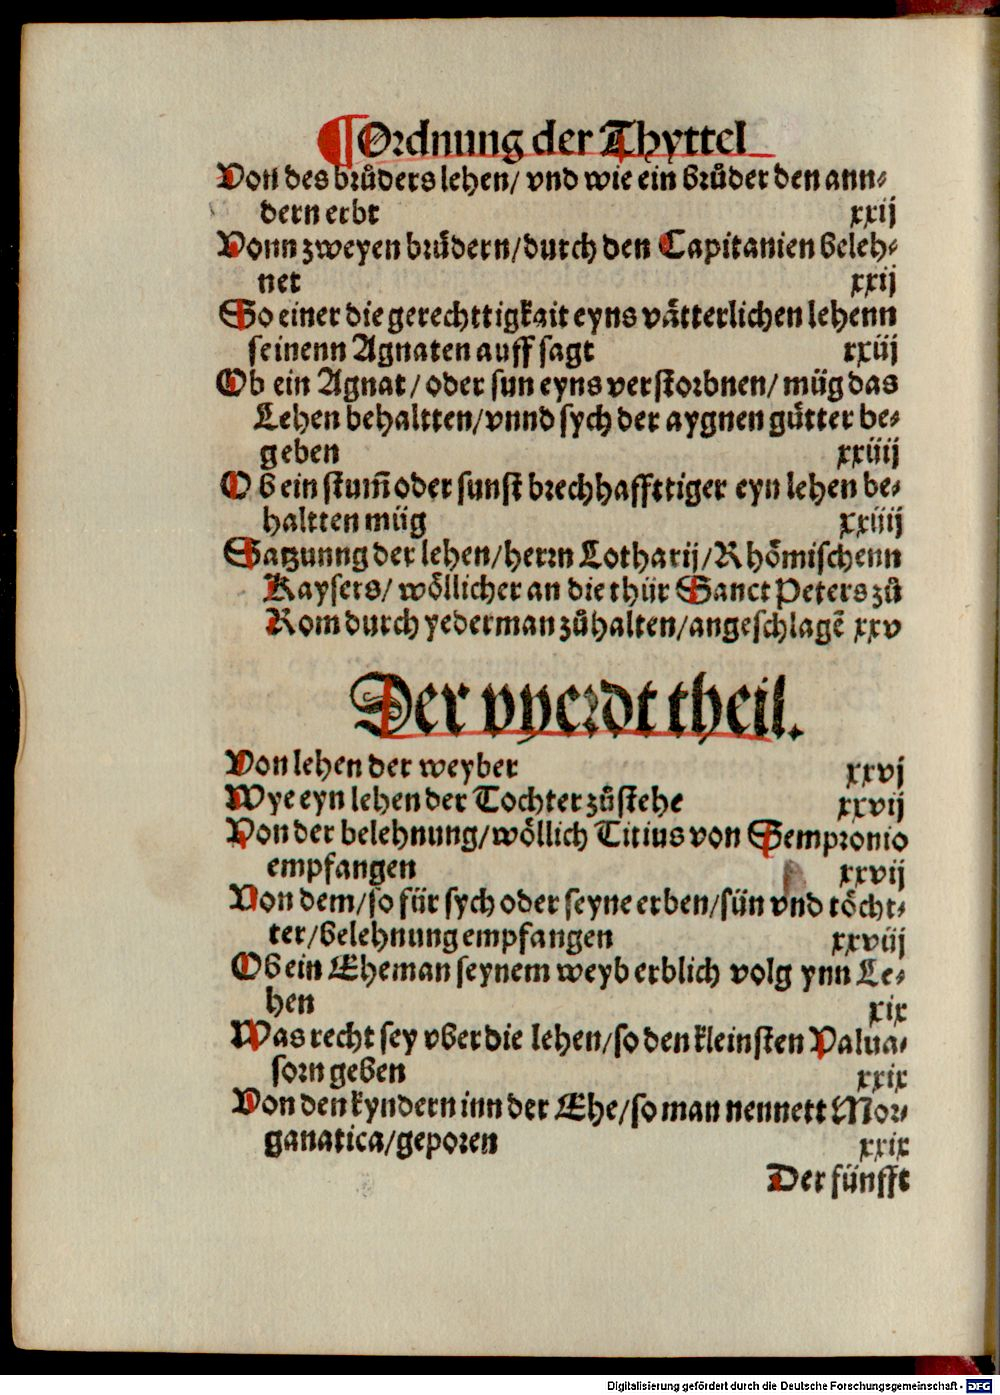 ¶Ordnung der Thyttel
Von des brůders lehen/ vnd wie ein brůder den ann⸗
dern erbt xxij
Vonn zweyen brůdern/durch den Capitanien beleh⸗
net xxij
So einer die gerechttigkait eyns vaͤtterlichen lehenn
seinenn Agnaten auff sagt xxiij
Ob ein Agnat/ oder sun eyns verstorbnen/ muͤg das
Lehen behaltten/vnnd sych der aygnen guͤtter be⸗
geben xxiiij
Ob ein stum̃ oder sunst brechhaffttiger eyn lehen be⸗
haltten muͤg xxiiij
Satzunng der lehen/herrn Lotharij/Rhoͤmischenn
Kaysers/ woͤllicher an die thuͤr Sanct Peters zů
Rom durch yederman zůhalten/angeschlagẽ xxv
Der vyerdt theil.
Von lehen der weyber xxvj
Wye eyn lehen der Tochter zůstehe xxvij
Von der belehnung/woͤllich Titius von Sempronio
empfangen xxvij
Von dem/so fuͤr sych oder seyne erben/suͤn vnd toͤcht⸗
ter/belehnung empfangen xxviij
Ob ein Eheman seynem weyb erblich volg ynn Le⸗
hen xix
Was recht sey vber die lehen/so den kleinsten Valua⸗
sorn geben xxix
Von den kyndern inn der Ehe/so man nennett Mor⸗
ganatica/geporen xxix
Der fuͤnfft
Digitalisierung gefördert durch die Deutsche Forschungsgemeinschaft - DFG